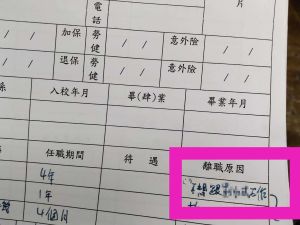 電話
片
加保 勞健 / / 意外險 / /
退保 勞健 / / 意外險 / /
係 入校年月 畢(肄)業 畢業年月
任職期間 待遇 離職原因
4年 想 工作
1年
4個月